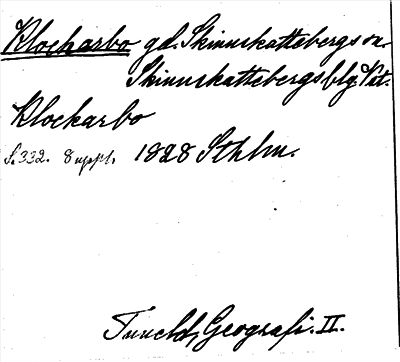 Klockarbo gd. Skinnskattebergs sn.
Skinnskattebergsblg. Väst.
Klockarbo
S. 332. 8 uppl. 1828 Sthlm.
Tuneld, Geografi. II.